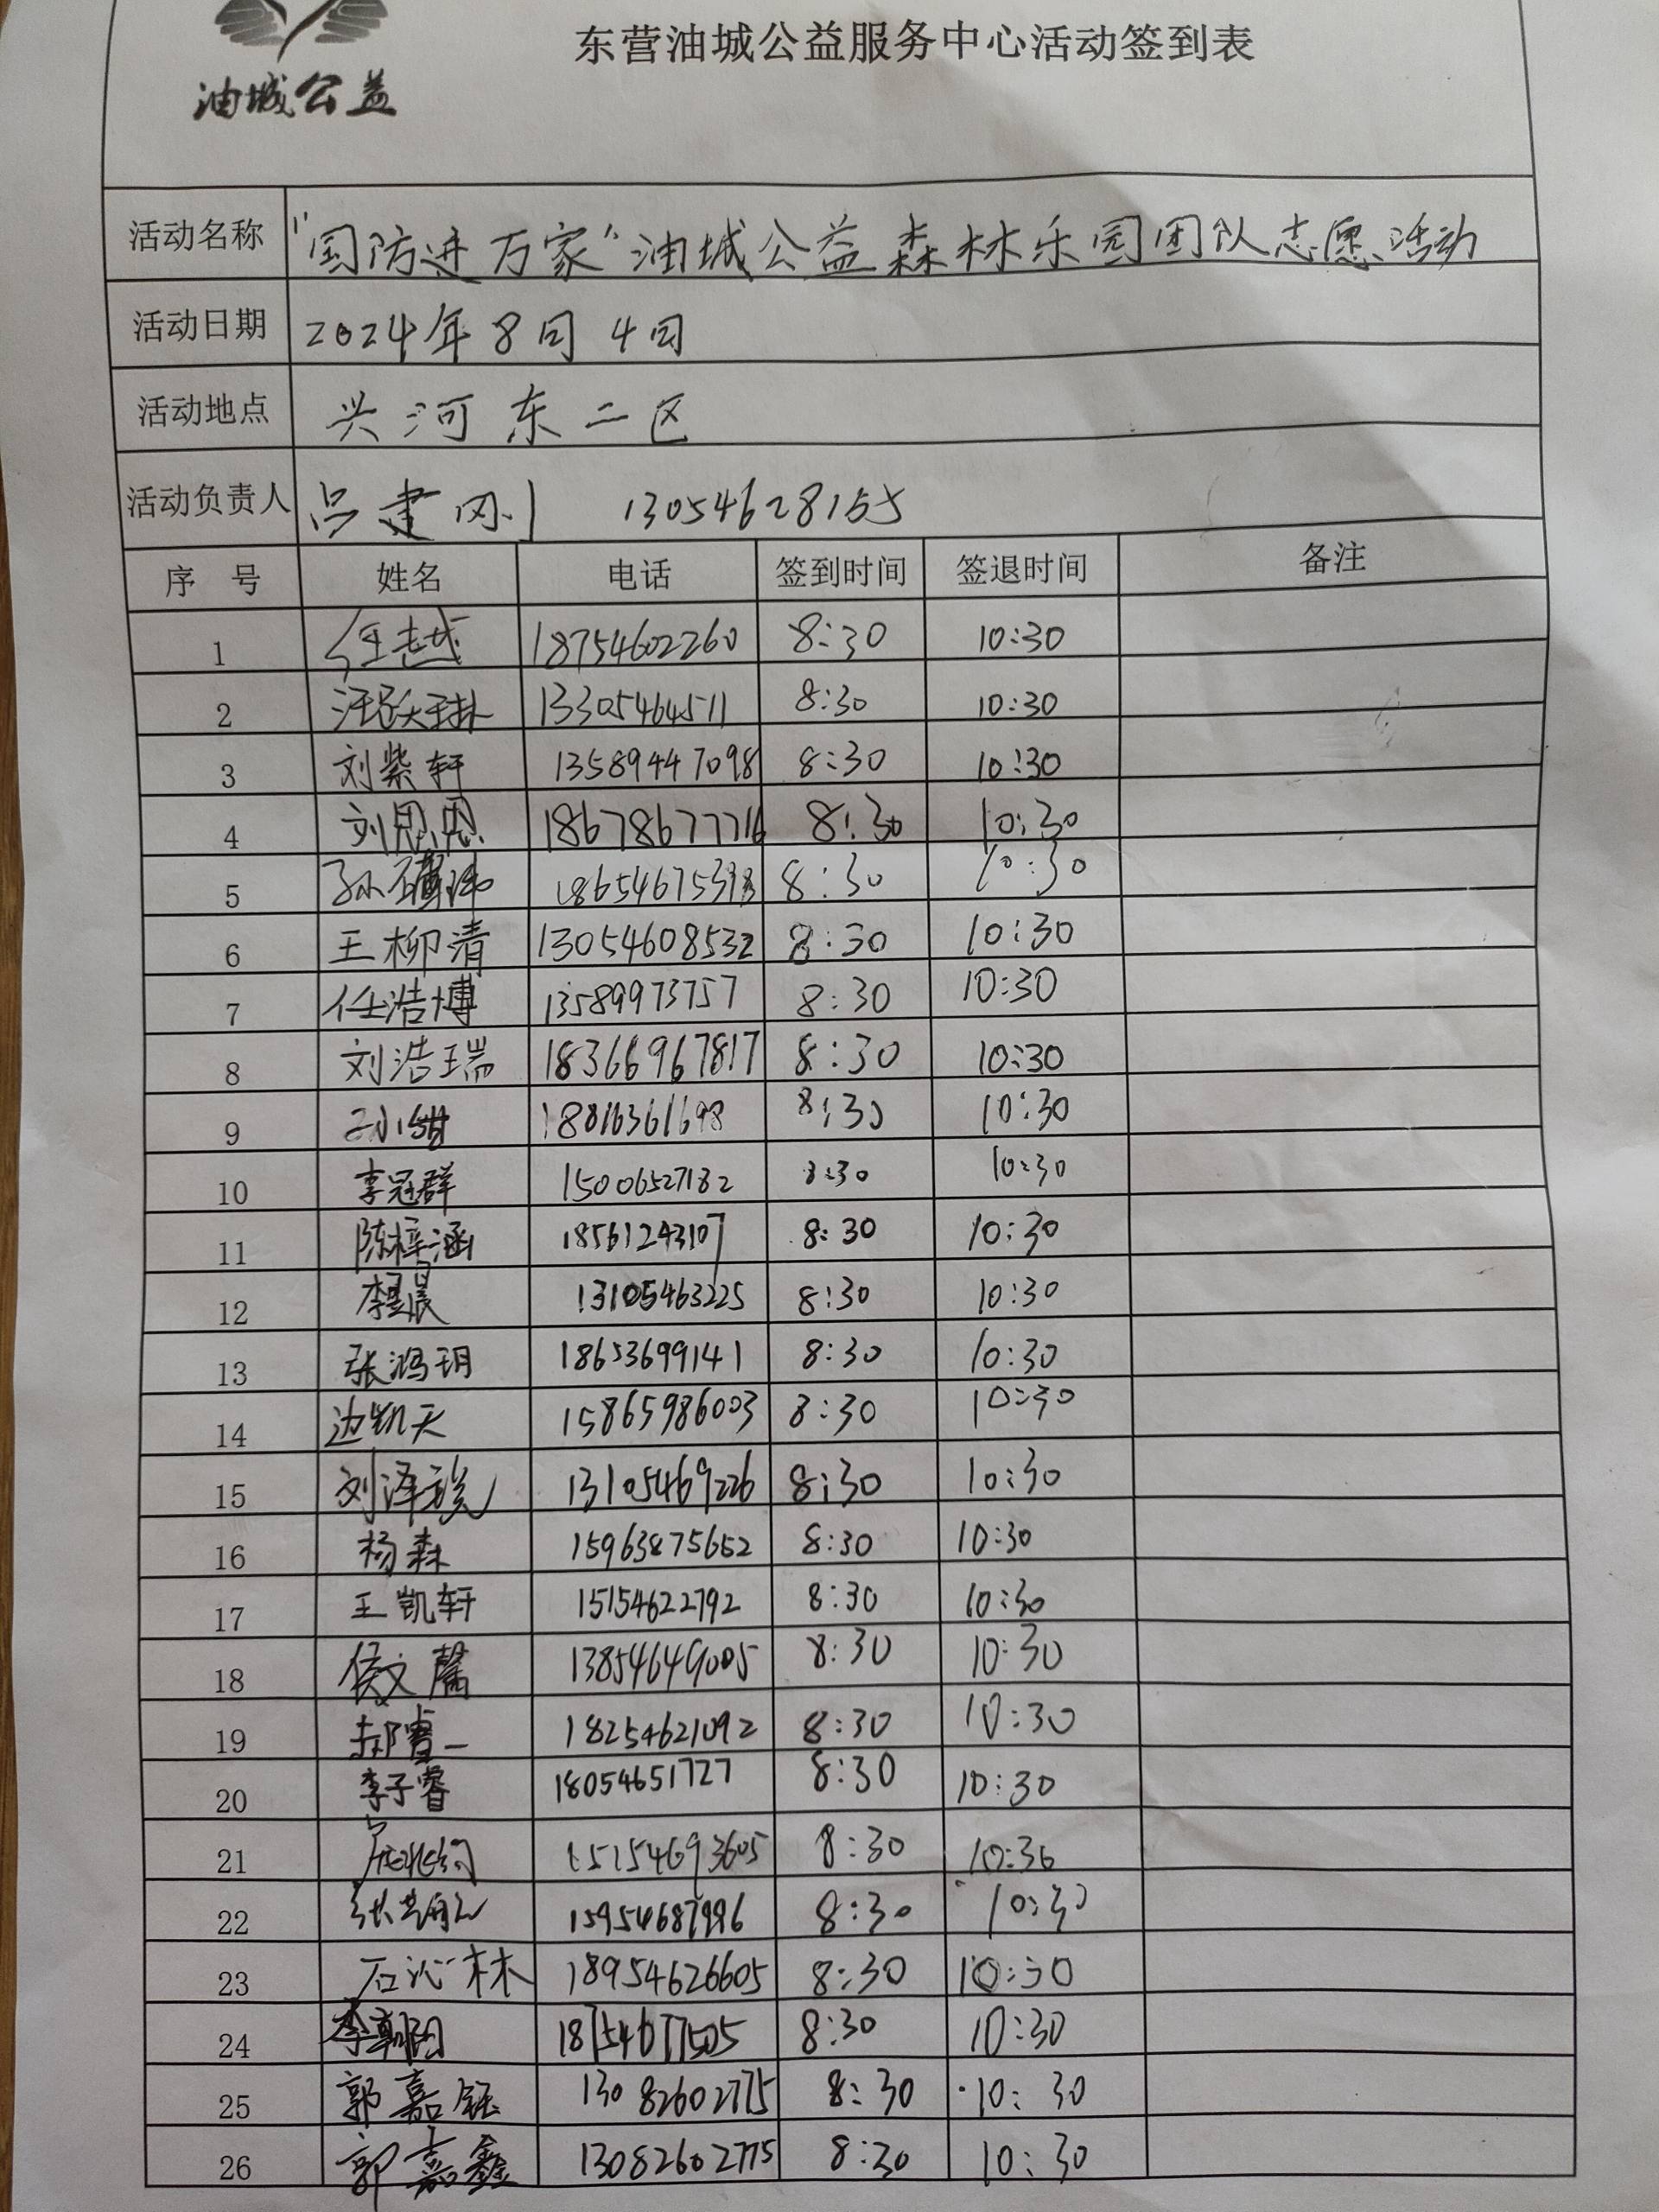 油城公益
东营油城公益服务中心活动签到表
活动名称 "国防进万家"油城公益森林乐园团队志愿活动
活动日期 2024年8月4日
活动地点 兴河东二区
活动负责人 吕建刚 13054628155
序 号 姓名 电话 签到时间 签退时间 备注
1 任志越 18754602260 8:30 10:30
2 13305464511 8:30 10:30
3 刘紫轩 13589447098 8:30 10:30
4 刘恩恩 18678677716 8:30 10:30
5 8:30 10:30
6 王柳清 13054608532 8:30 10:30
7 任浩博 13589973757 8:30 10:30
8 刘浩瑞 18366967817 8:30 10:30
9 8:30 10:30
10 李冠群 15006527182 8:30 10:30
11 陈梓涵 18561243107 8:30 10:30
12 13105463225 8:30 10:30
13 张鸿玥 18653699141 8:30 10:30
14 边凯天 15865986003 8:30 10:30
15 刘泽锐 13105469226 8:30 10:30
16 杨森 15963875652 8:30 10:30
17 王凯轩 15154622792 8:30 10:30
18 侯文馨 13854649005 8:30 10:30
19 郝睿一 18254621092 8:30 10:30
20 李子睿 18054651727 8:30 10:30
21 15154693605 8:30 10:30
22 15954687996 8:30 10:30
23 石沁林 18954626605 8:30 10:30
24 李朝阳 18754677505 8:30 10:30
25 郭嘉钰 13082602775 8:30 10:30
26 郭嘉鑫 13082602775 8:30 10:30